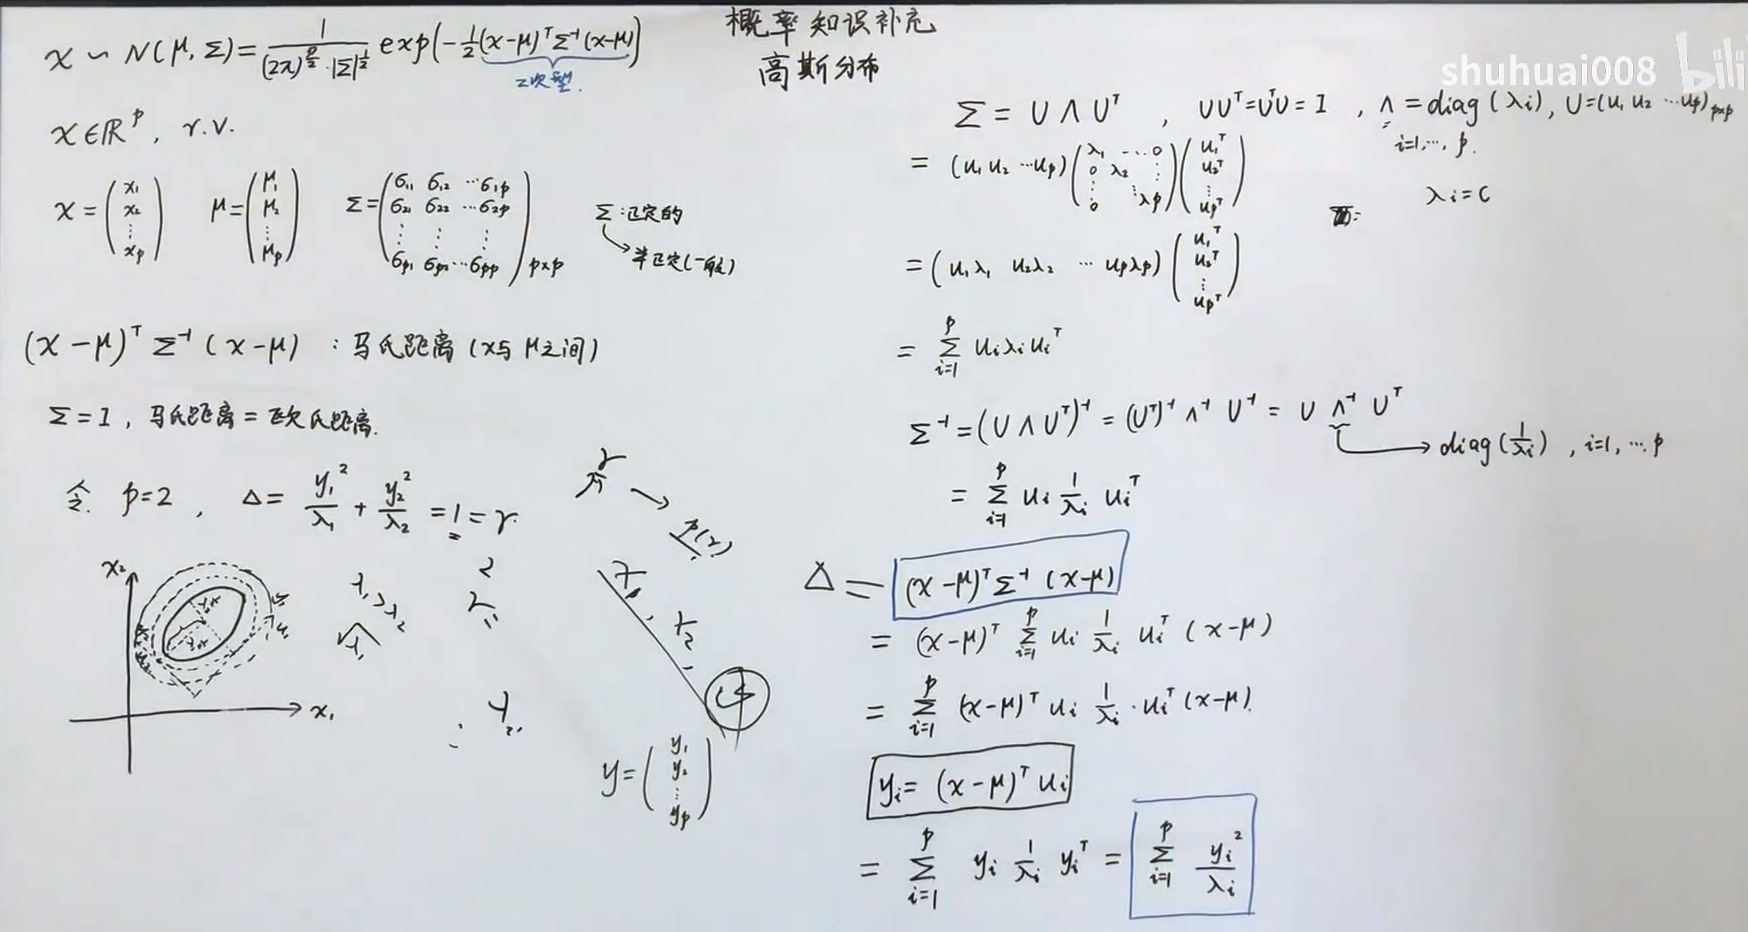 概率知识补充
高斯分布
shuhuai008 bili
x ~ N(μ, Σ) = 1/((2π)^(p/2)·|Σ|^(1/2)) exp(-1/2 (x-μ)ᵀ Σ⁻¹ (x-μ))
二次型.
x ∈ ℝᵖ, r.v.
x = (x₁ x₂ ⋮ xₚ) μ = (μ₁ μ₂ ⋮ μₚ) Σ = (σ₁₁ σ₁₂ ⋯ σ₁ₚ; σ₂₁ σ₂₂ ⋯ σ₂ₚ; ⋮ ⋮ ⋮; σₚ₁ σₚ₂ ⋯ σₚₚ)p×p
Σ:正定的
半正定(一般)
(x-μ)ᵀ Σ⁻¹ (x-μ) : 马氏距离 (x与μ之间)
Σ=I, 马氏距离 = 欧氏距离.
令 p=2, Δ = y₁²/λ₁ + y₂²/λ₂ = 1 = r
x₂
x₁
λ₁>λ₂
√λ₁
y = (y₁ y₂ ⋮ yₚ)
Σ = U Λ Uᵀ, UUᵀ=UᵀU=I, Λ = diag(λᵢ), U=(u₁ u₂ ⋯ uₚ)p×p
i=1,⋯,p.
= (u₁ u₂ ⋯ uₚ) (λ₁ ⋯ 0; 0 λ₂ ⋮; ⋮ ⋱; 0 λₚ) (u₁ᵀ u₂ᵀ ⋮ uₚᵀ)
λᵢ=C
= (u₁λ₁ u₂λ₂ ⋯ uₚλₚ) (u₁ᵀ u₂ᵀ ⋮ uₚᵀ)
= Σᵢ₌₁ᵖ uᵢλᵢuᵢᵀ
Σ⁻¹ = (U Λ Uᵀ)⁻¹ = (Uᵀ)⁻¹ Λ⁻¹ U⁻¹ = U Λ⁻¹ Uᵀ
diag(1/λᵢ), i=1,⋯,p
= Σᵢ₌₁ᵖ uᵢ 1/λᵢ uᵢᵀ
Δ = (x-μ)ᵀ Σ⁻¹ (x-μ)
= (x-μ)ᵀ Σᵢ₌₁ᵖ uᵢ 1/λᵢ uᵢᵀ (x-μ)
= Σᵢ₌₁ᵖ (x-μ)ᵀ uᵢ 1/λᵢ · uᵢᵀ (x-μ).
yᵢ = (x-μ)ᵀ uᵢ
= Σᵢ₌₁ᵖ yᵢ 1/λᵢ yᵢᵀ = Σᵢ₌₁ᵖ yᵢ²/λᵢ